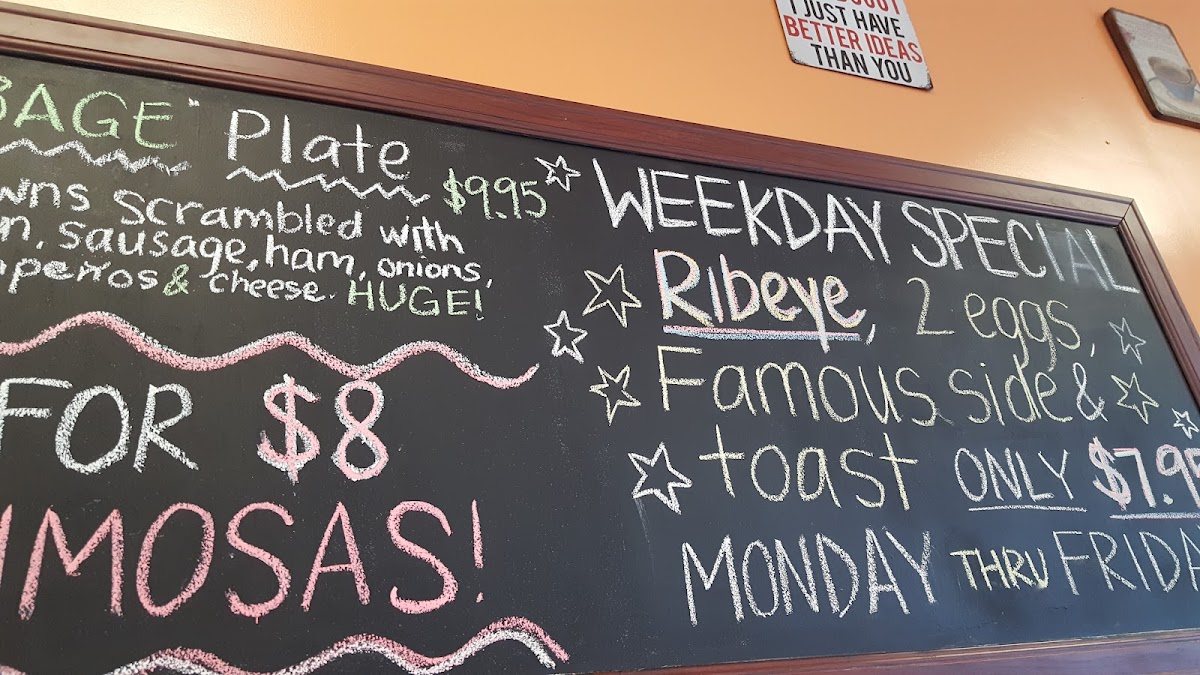 I JUST HAVE
BETTER IDEAS
THAN YOU
BAGE" Plate
$9.95
wns scrambled with
n, sausage, ham, onions,
& cheese. HUGE!
FOR $8
IMOSAS!
WEEKDAY SPECIAL
Ribeye, 2 eggs,
Famous side &
toast ONLY $7.95
MONDAY THRU FRIDA